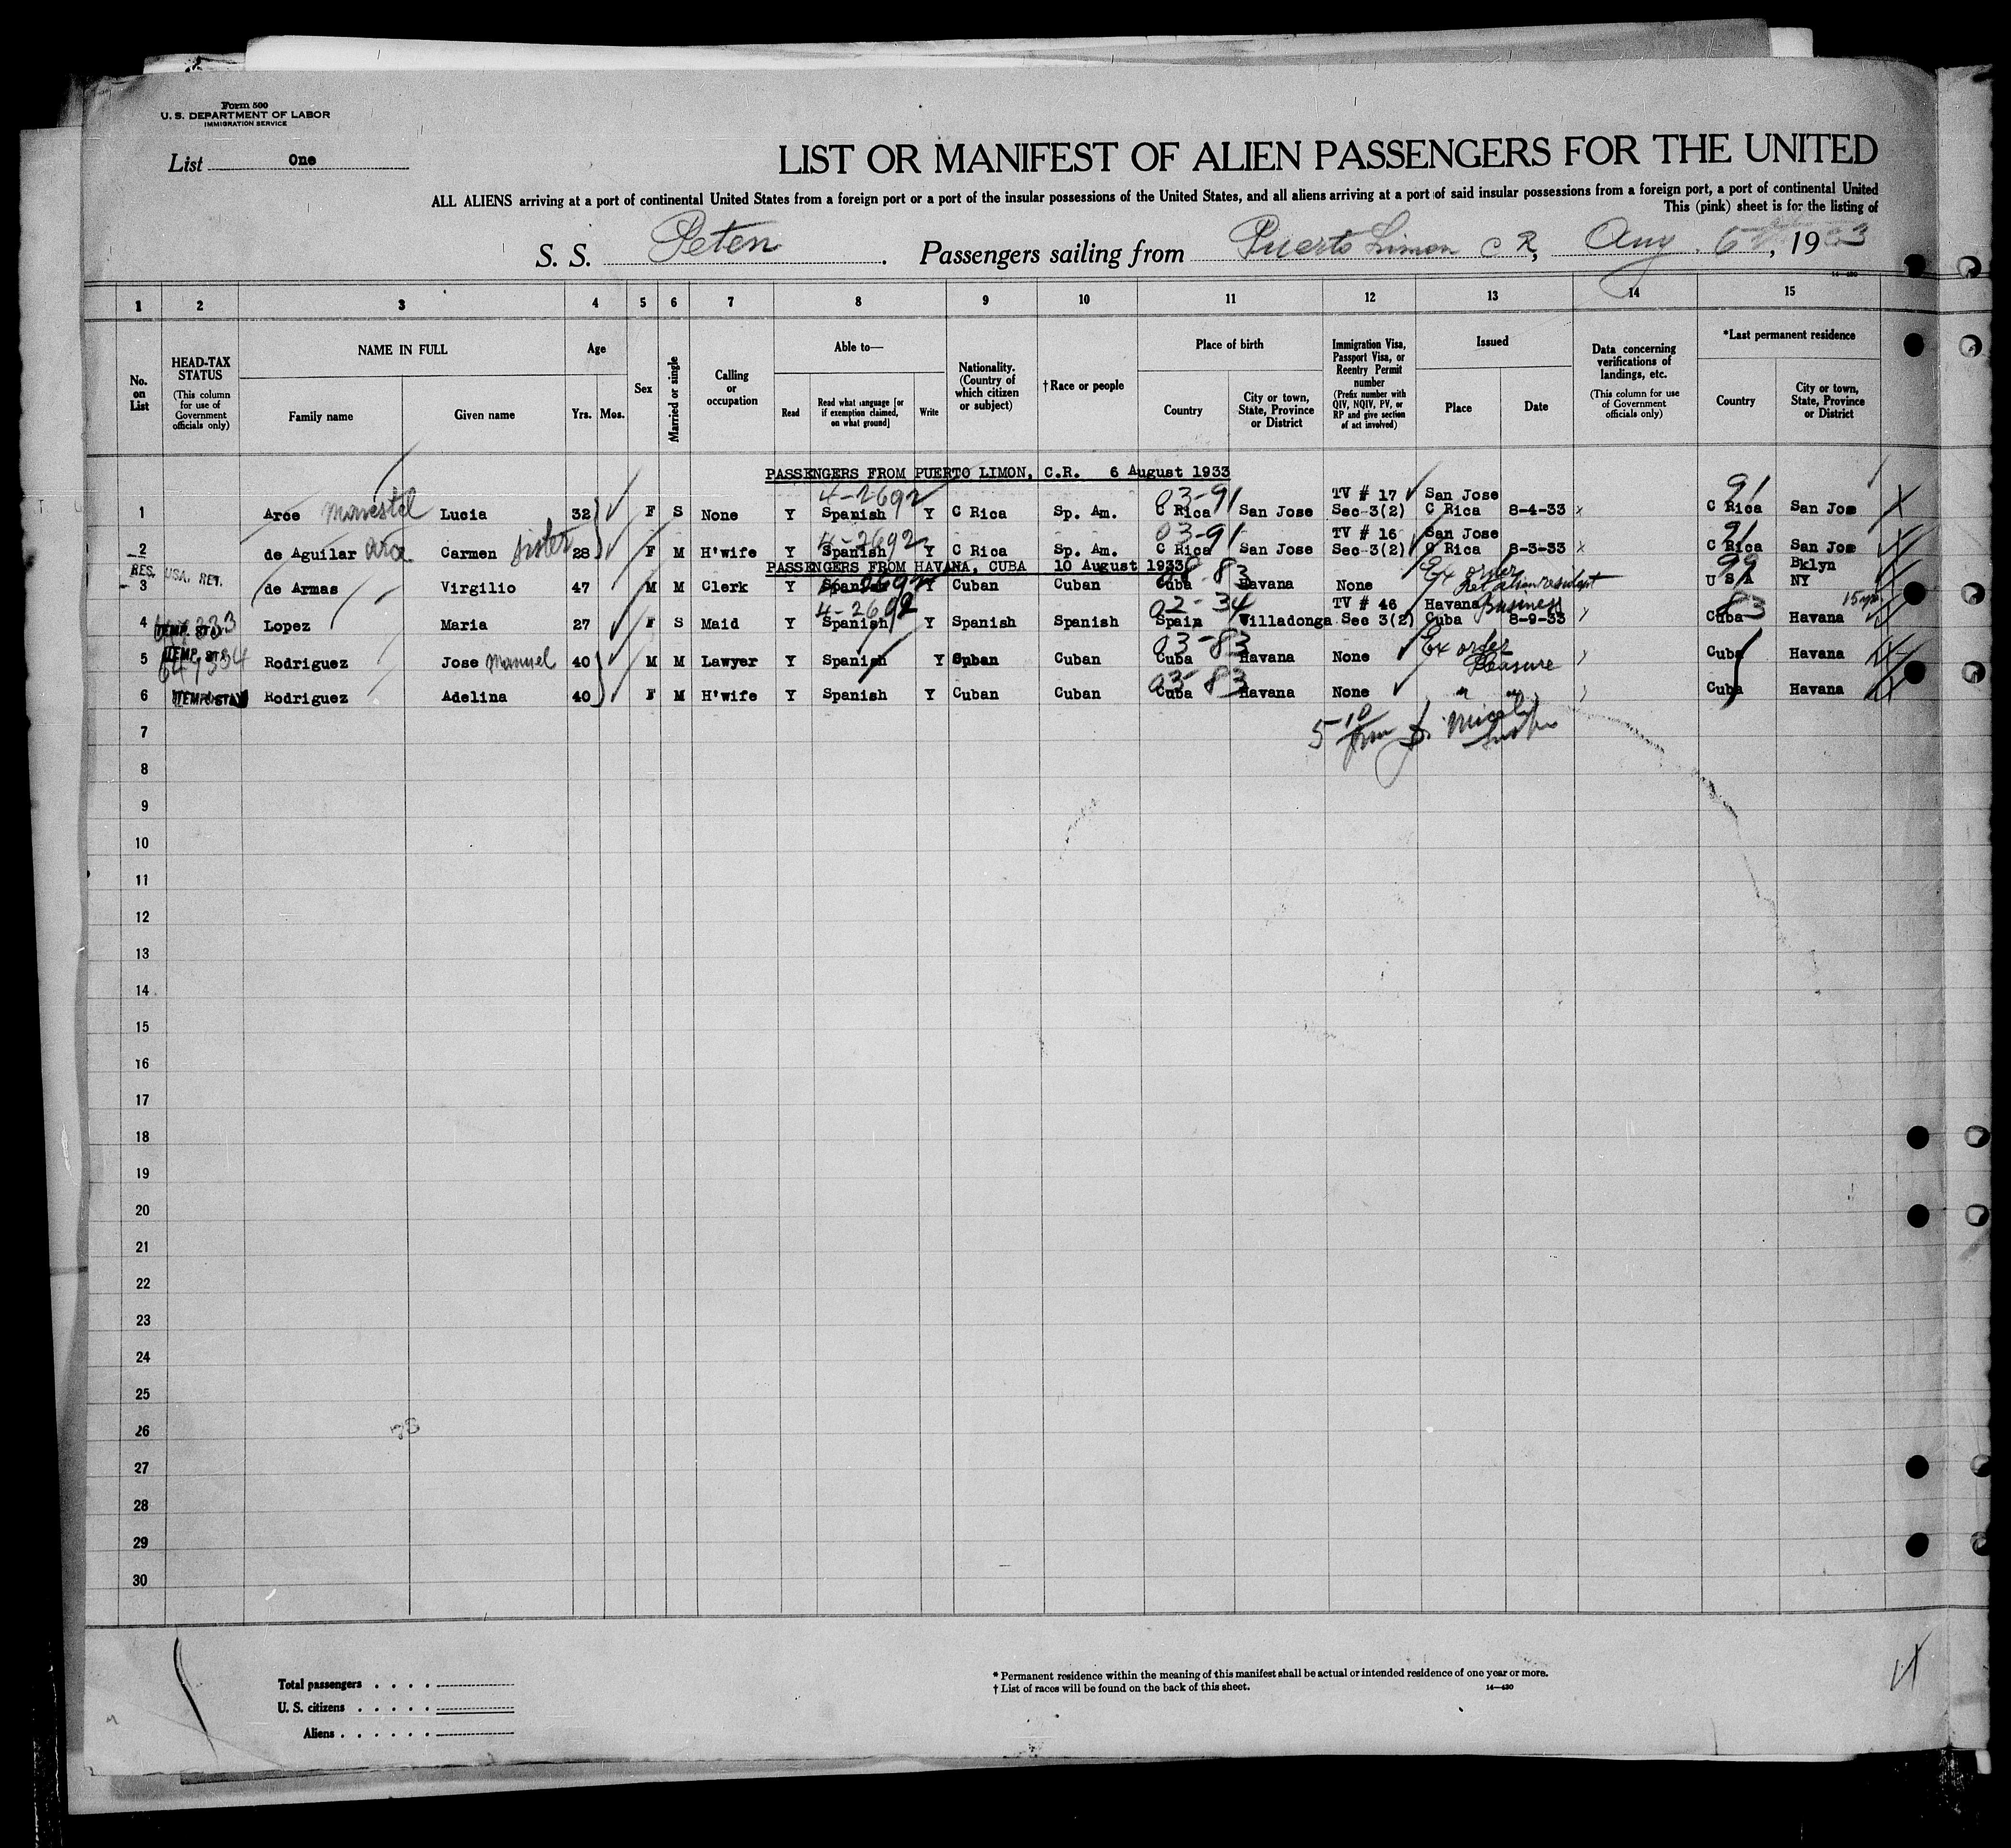 Form 500
U. S. DEPARTMENT OF LABOR
IMMIGRATION SERVICE
List One
LIST OR MANIFEST OF ALIEN PASSENGERS FOR THE UNITED
ALL ALIENS arriving at a port of continental United States from a foreign port or a port of the insular possessions of the United States, and all aliens arriving at a port of said insular possessions from a foreign port, a port of continental United
This (pink) sheet is for the listing of
S. S. Peten. Passengers sailing from Puerto Limon C R, Aug. 6, 1933
14-430
1 2 3 4 5 6 7 8 9 10 11 12 13 14 15
No. on List
HEAD-TAX STATUS (This column for use of Government officials only)
NAME IN FULL
Family name Given name
Age
Yrs. Mos.
Sex
Married or single
Calling or occupation
Able to—
Read Read what language [or if exemption claimed, on what ground] Write
Nationality. (Country of which citizen or subject)
†Race or people
Place of birth
Country City or town, State, Province or District
Immigration Visa, Passport Visa, or Reentry Permit number (Prefix number with QIV, NQIV, PV, or RP and give section of act involved)
Issued
Place Date
Data concerning verifications of landings, etc. (This column for use of Government officials only)
*Last permanent residence
Country City or town, State, Province or District
PASSENGERS FROM PUERTO LIMON, C.R. 6 August 1933
4-2692 03-91 TV # 17 San Jose 91
1 Arce Lucia 32 F S None Y Spanish Y C Rica Sp. Am. C Rica San Jose Sec-3(2) C Rica 8-4-33 x C Rica San Jose
4-2692 03-91 TV # 16 San Jose 91
2 de Aguilar Arce Carmen sister 28 F M H'wife Y Spanish Y C Rica Sp. Am. C Rica San Jose Sec-3(2) C Rica 8-3-33 x C Rica San Jose
PASSENGERS FROM HAVANA, CUBA 10 August 1933
RES. USA. RET. 83 Ex order 99 Bklyn
3 de Armas Virgilio 47 M M Clerk Y Spanish Y Cuban Cuban Cuba Havana None Ret alien resident U S A NY
4-2692 02-34 TV # 46 Havana Business 83 15 yrs
4 TEMP. STAY Lopez Maria 27 F S Maid Y Spanish Y Spanish Spanish Spain Villadonga Sec 3(2) Cuba 8-9-33 Cuba Havana
TEMP. STAY 03-83 Ex order
5 Rodriguez Jose Manuel 40 M M Lawyer Y Spanish Y Cuban Cuban Cuba Havana None Pleasure Cuba Havana
03-83
6 TEMP. STAY Rodriguez Adelina 40 F M H'wife Y Spanish Y Cuban Cuban Cuba Havana None " " Cuba Havana
7
8
9
10
11
12
13
14
15
16
17
18
19
20
21
22
23
24
25
26
27
28
29
30
Total passengers . . . .
U. S. citizens . . . . .
Aliens . . . . . .
* Permanent residence within the meaning of this manifest shall be actual or intended residence of one year or more.
† List of races will be found on the back of this sheet.
14-430